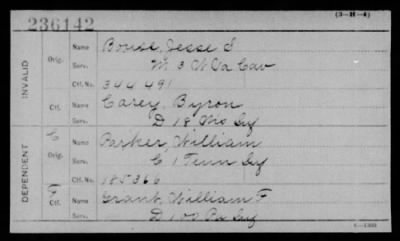 236142
(3-H-4)
INVALID
Orig.
Name
Bouse, Jesse S
Serv.
M 3 W Va Cav
Ctf. No.
344 491
Ctf.
Name
Carey, Byron
Serv.
D 18 Inf
DEPENDENT
C
Orig.
Name
Parker, William
Serv.
C 1 Tenn Inf
Ctf. No.
185366
Ctf.
Name
Grant, William F
Serv.
D 100 Pa Inf